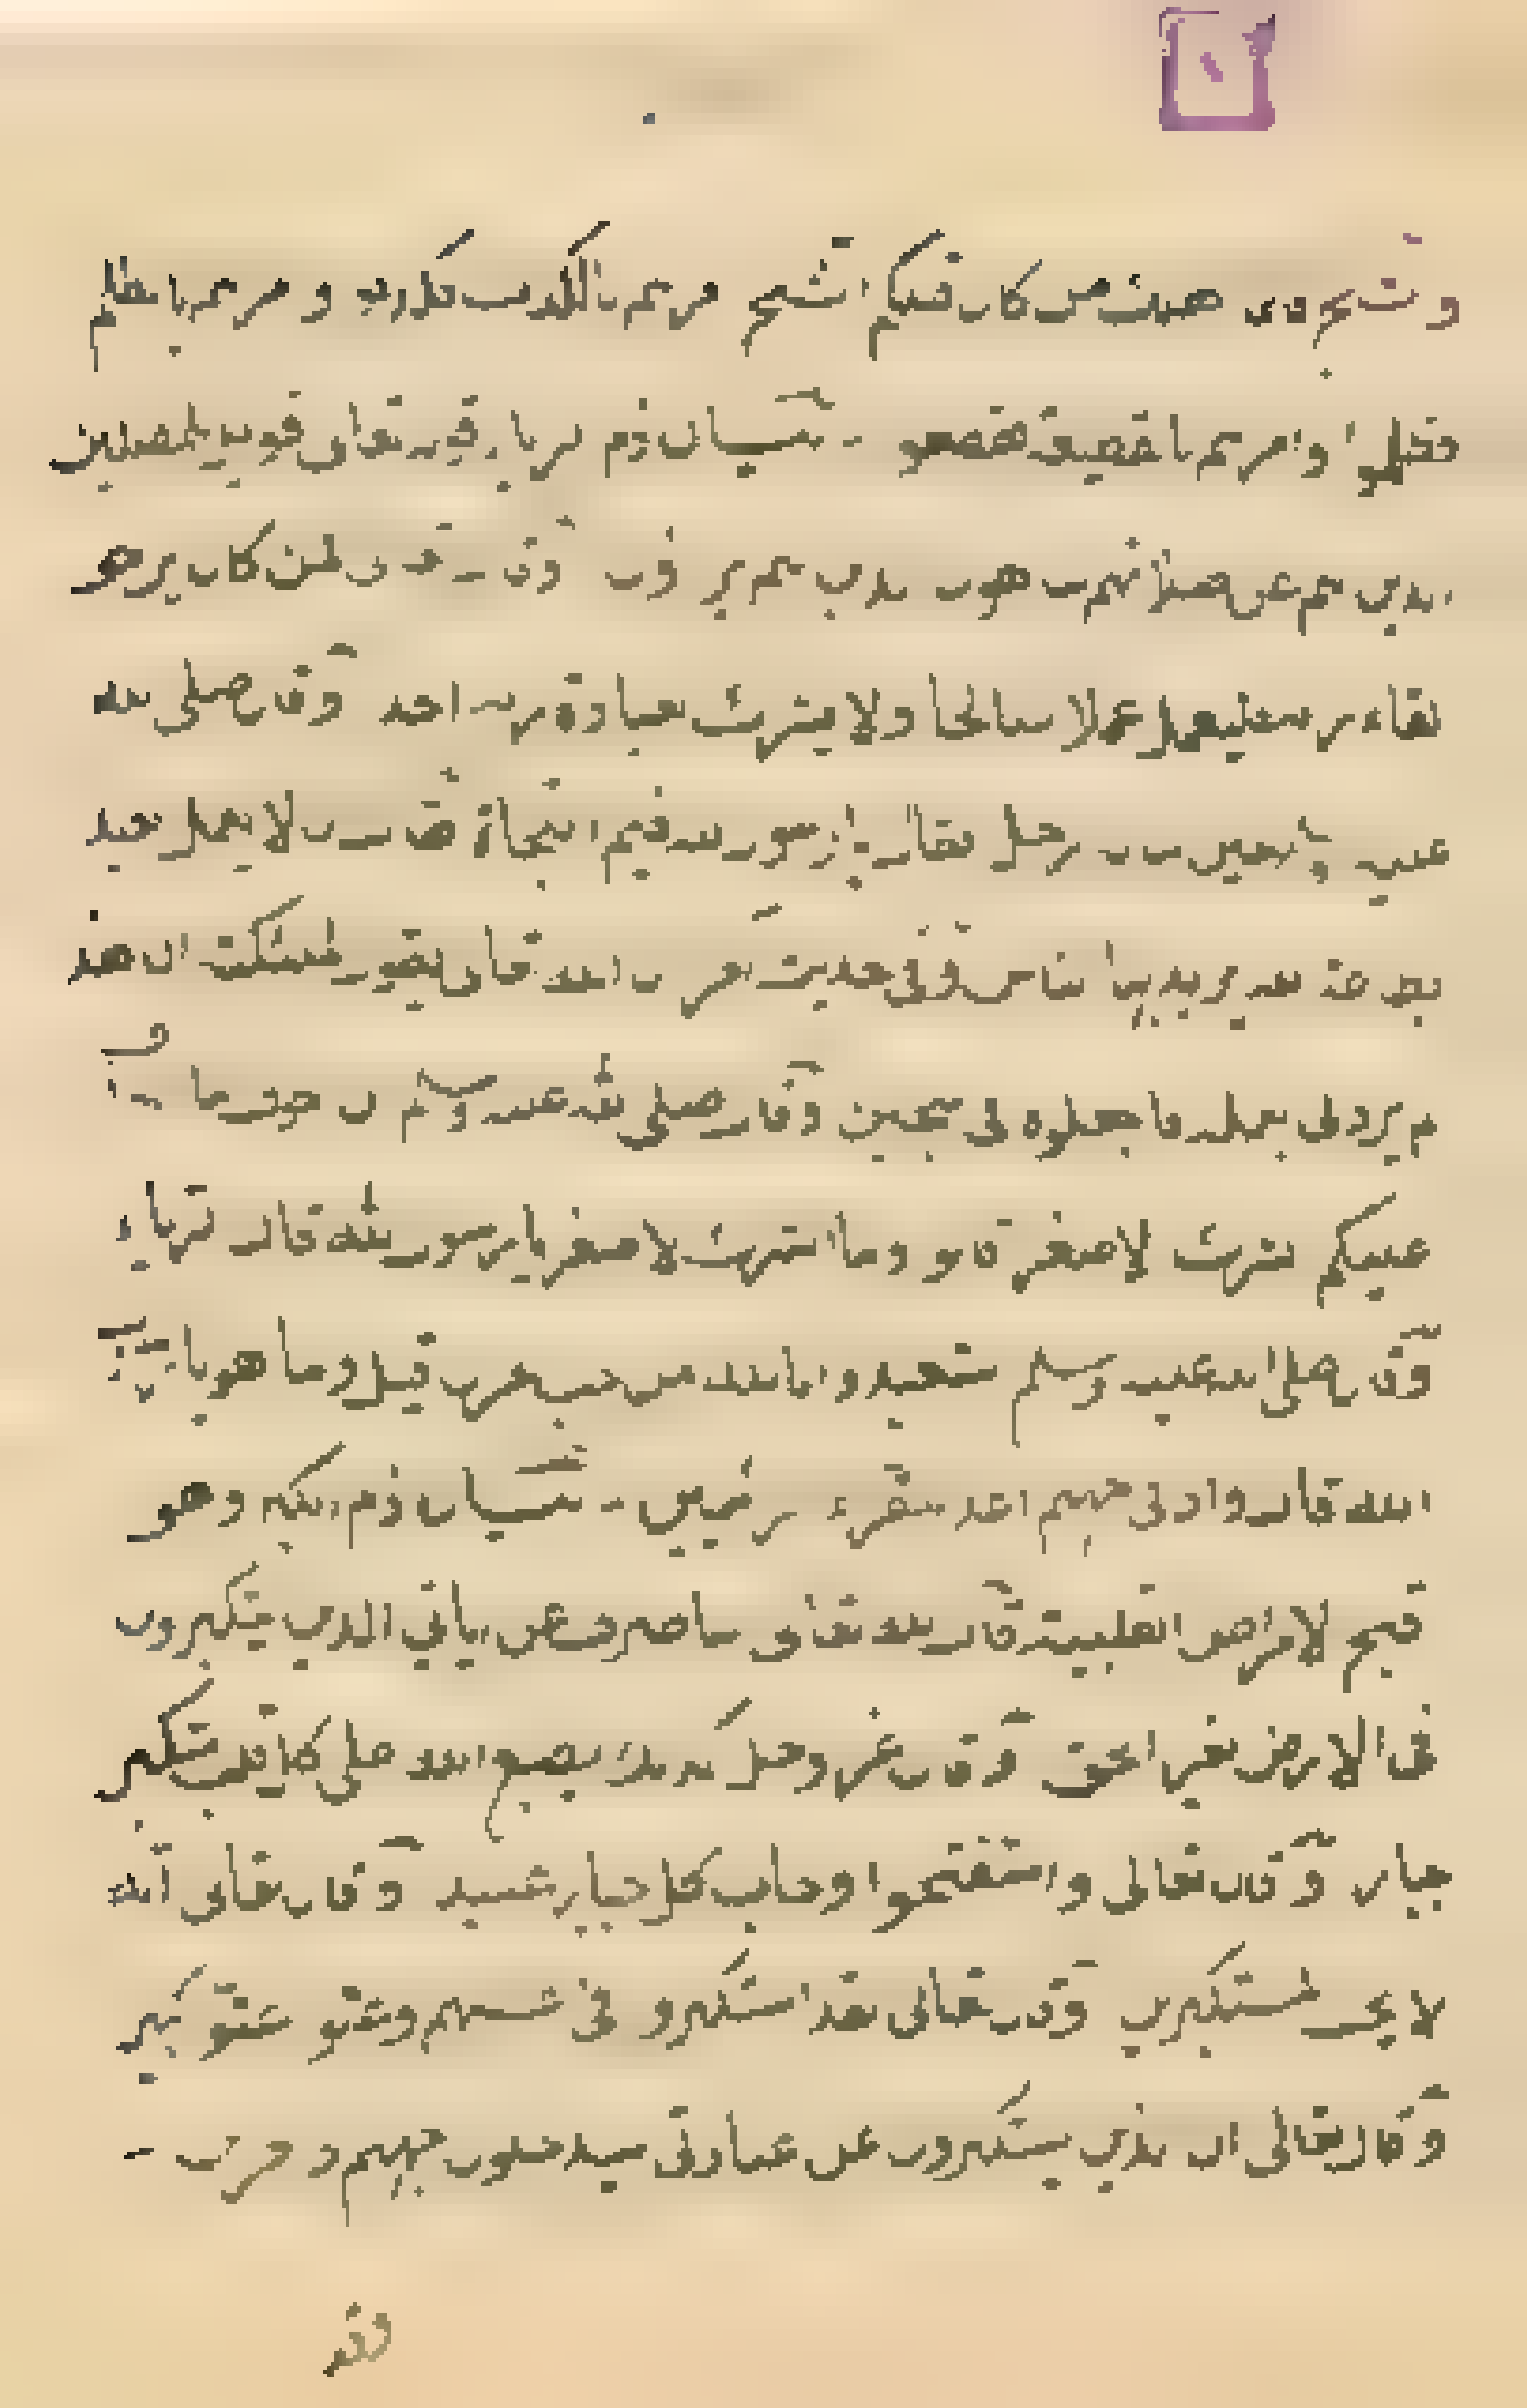 والشح فانما هلك من كان قبلكم الشح امرهم بالكذب فكذبوا وامرهم بالظلم
فظلموا وامرهم بالقطيعة فقطعوا بيان ذم الرياء قال الله تعالى فويل للمصلين
الذين هم عن صلاتهم ساهون الذين هم يراؤن وقال فمن كان يرجو
لقاء ربه فليعمل عملا صالحا ولا يشرك بعبادة ربه احدا وقال صلى الله
عليه وسلم حين سأله رجل فقال يا رسول الله فيم النجاة فقال ان لا يعمل العبد
بطاعة الله يريد بها الناس وفي حديث اخر ان الله تعالى يقول للملائكة ان هذا
لم يردني بعمله فاجعلوه في سجين وقال صلى الله عليه وسلم ان اخوف ما اخاف
عليكم الشرك الاصغر قالوا وما الشرك الاصغر يا رسول الله قال الرياء
وقال صلى الله عليه وسلم استعيذوا بالله من جب الحزن قيل وما هو يا رسول
الله قال واد في جهنم اعد للقراء المرائين بيان ذم الكبر وهو
اقبح الامراض القلبية قال الله تعالى ساصرف عن اياتي الذين يتكبرون
في الارض بغير الحق وقال عز وجل كذلك يطبع الله على كل قلب متكبر
جبار وقال تعالى واستفتحوا وخاب كل جبار عنيد وقال تعالى انه
لا يحب المستكبرين وقال تعالى لقد استكبروا في انفسهم وعتوا عتوا كبيرا
وقال تعالى ان الذين يستكبرون عن عبادتي سيدخلون جهنم داخرين